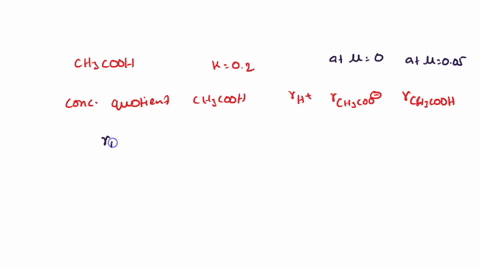 CH3COOH K = 0.2 at μ=0 at μ=0.05
conc. quotient CH3COOH γH+ γCH3COO⊖ γCH3COOH
γ1